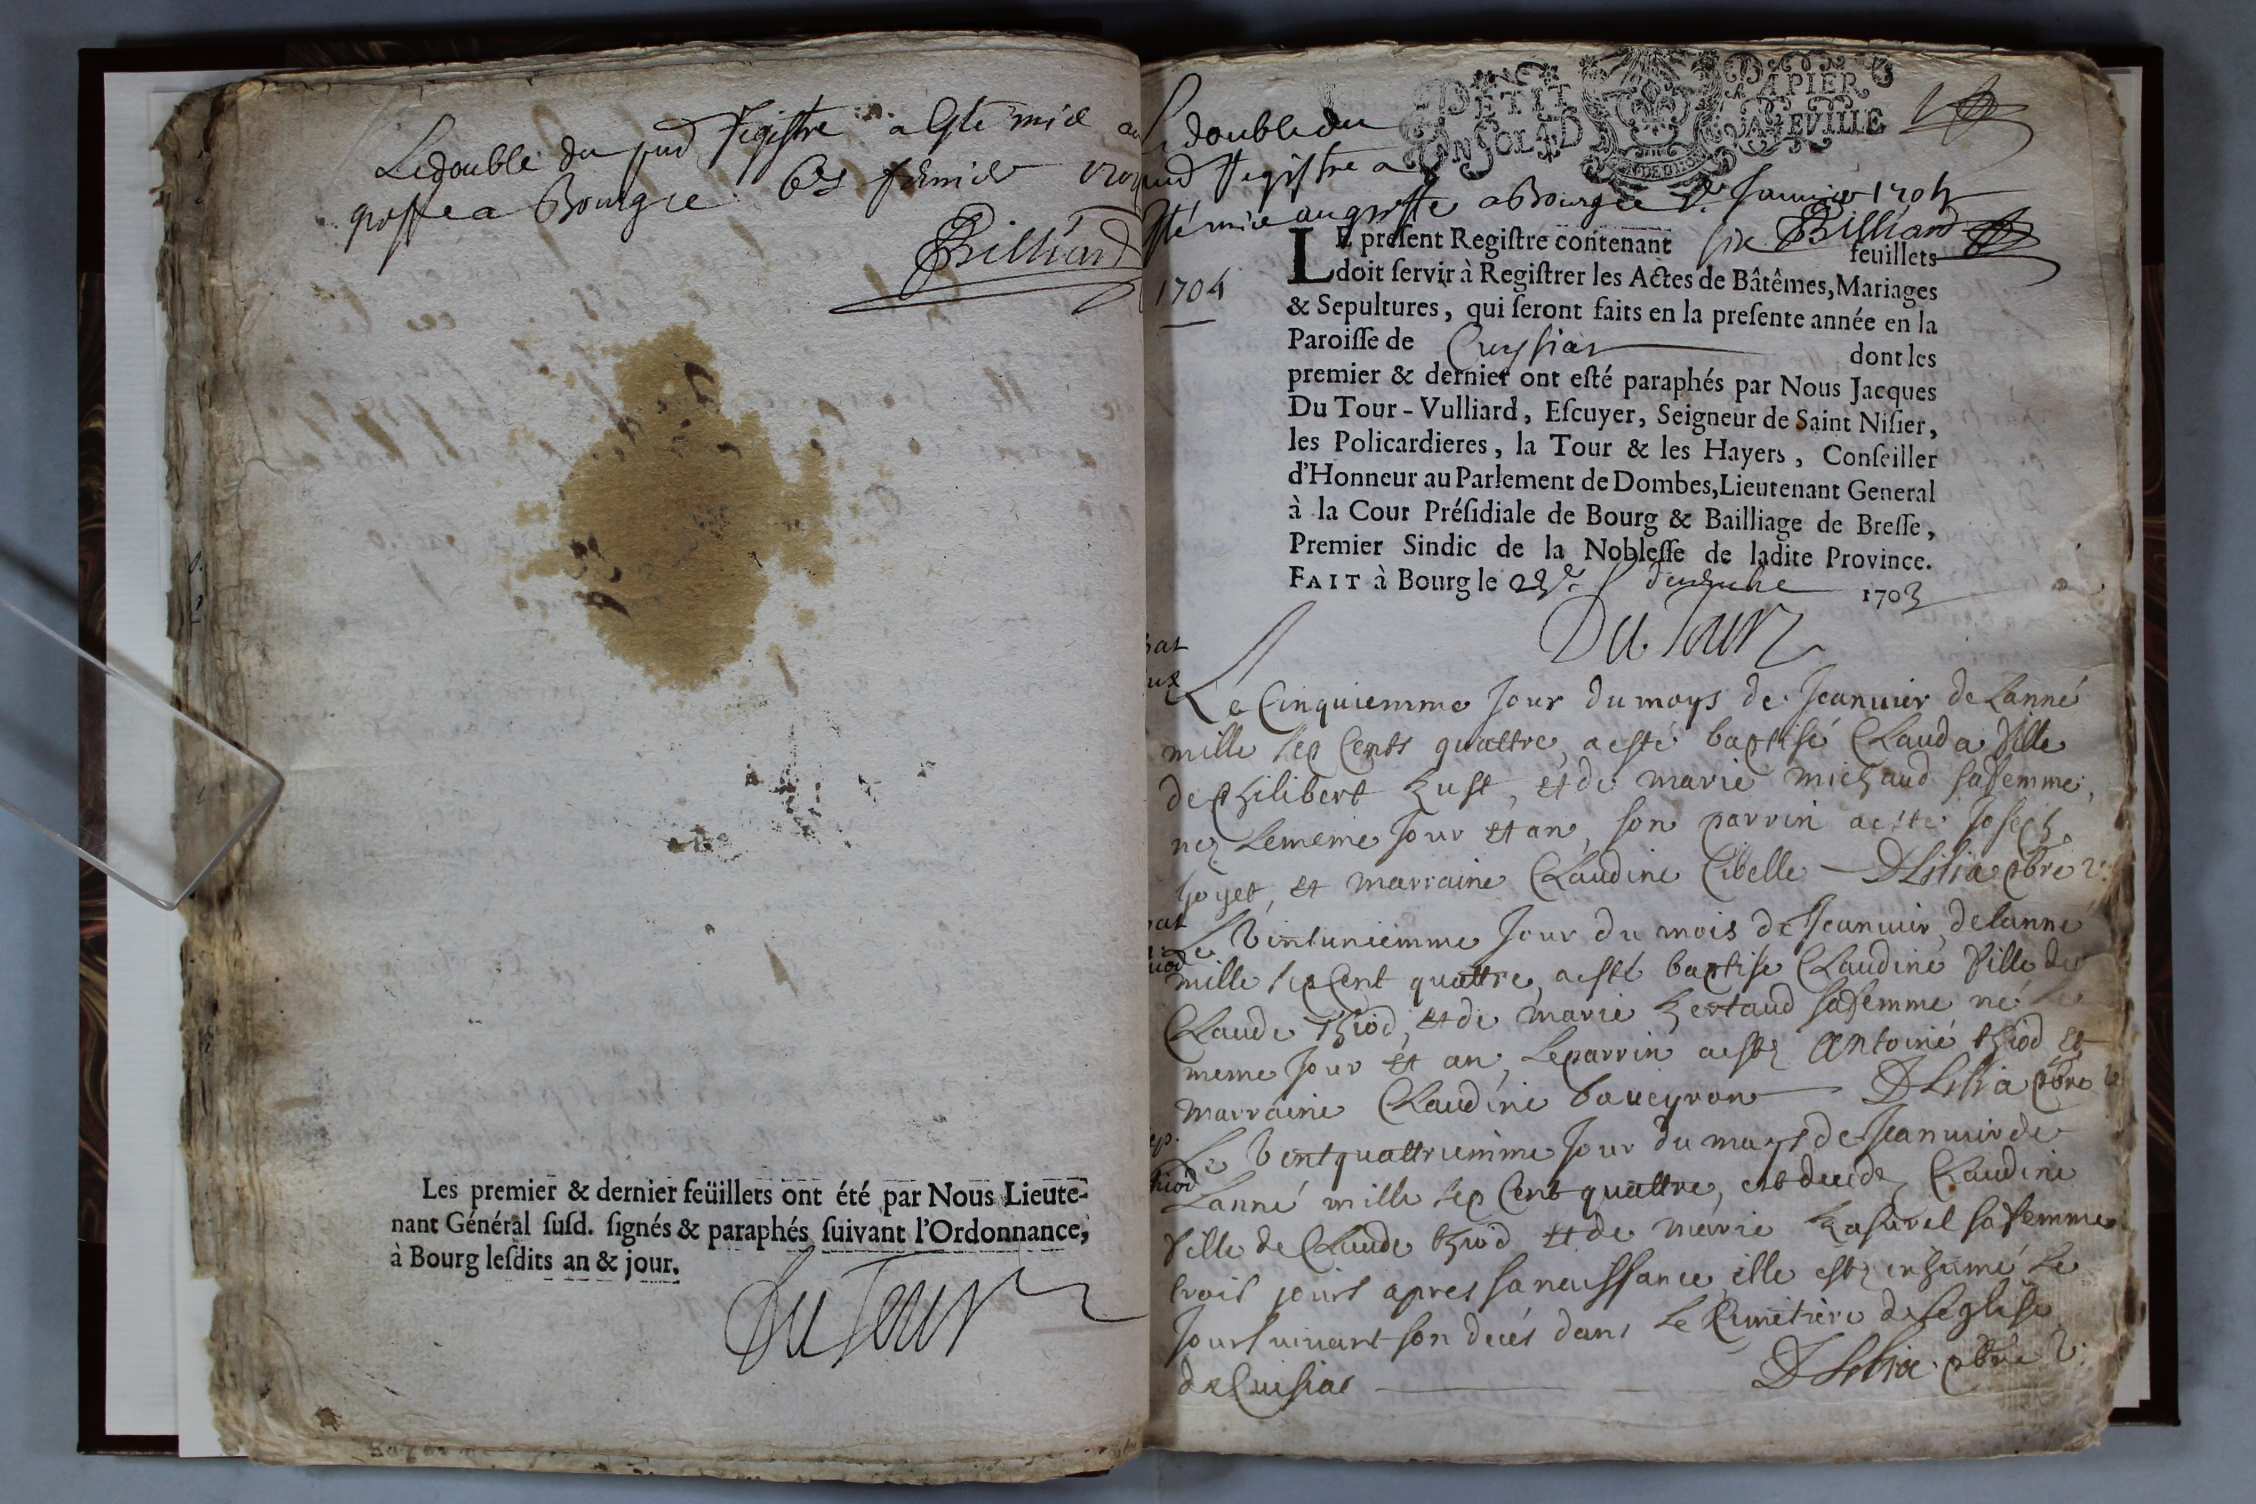 Le double du pnt Registre a esté mis au
greffe a Bourg ce 6es febvrier
Billiard
Les premier & dernier feüillets ont été par Nous Lieute-
nant Général susd. signés & paraphés suivant l'Ordonnance,
à Bourg lesdits an & jour.
Du Tour
PETIT PAPIER
Le double du
pnt Registre a
esté mis au greffe a Bourg ce Janvier 1705
Billiard
LE present Registre contenant six feuillets
doit servir à Registrer les Actes de Bâtêmes, Mariages
& Sepultures, qui seront faits en la presente année en la
1704
Paroisse de Cuysiat dont les
premier & dernier ont esté paraphés par Nous Jacques
Du Tour-Vulliard, Escuyer, Seigneur de Saint Nisier,
les Policardieres, la Tour & les Hayers, Conseiller
d'Honneur au Parlement de Dombes, Lieutenant General
à la Cour Présidiale de Bourg & Bailliage de Bresse,
Premier Sindic de la Noblesse de ladite Province.
FAIT à Bourg le 1703
Du Tour
Le Cinquiemme Jour du moys de Jeanuier de Lanné
mille sep Cents quattre, a esté baptisé Clauda fille
de philibert hust, et de marie michaud sa femme,
nez Le meme Jour et an, son parrin a esté Joseph
goyet, et marraine Claudine Cibelle DLilia pbre v.
Le Vintuniemme Jour du mois de Jeanuir de lanné
mille sep Cent quattre, a esté baptise Claudine fille de
Claude thiod, et de marie hertaud sa femme né le
meme Jour et an, Le parrin a estez Antoine thiod et
marraine Claudine baueyron DLilia pbre v
Le Ventquattriemme Jour du mays de Jeanuir de
Lanné mille sep Cent quattre, est decedez Claudine
fille de Claude thiod et de marie sa femme
trois jours apres sa naissance, elle est enhumé Le
Jour suiuant son decés dans Le Cimetiere de Leglise
de Cuisiat DLilia pbre v.